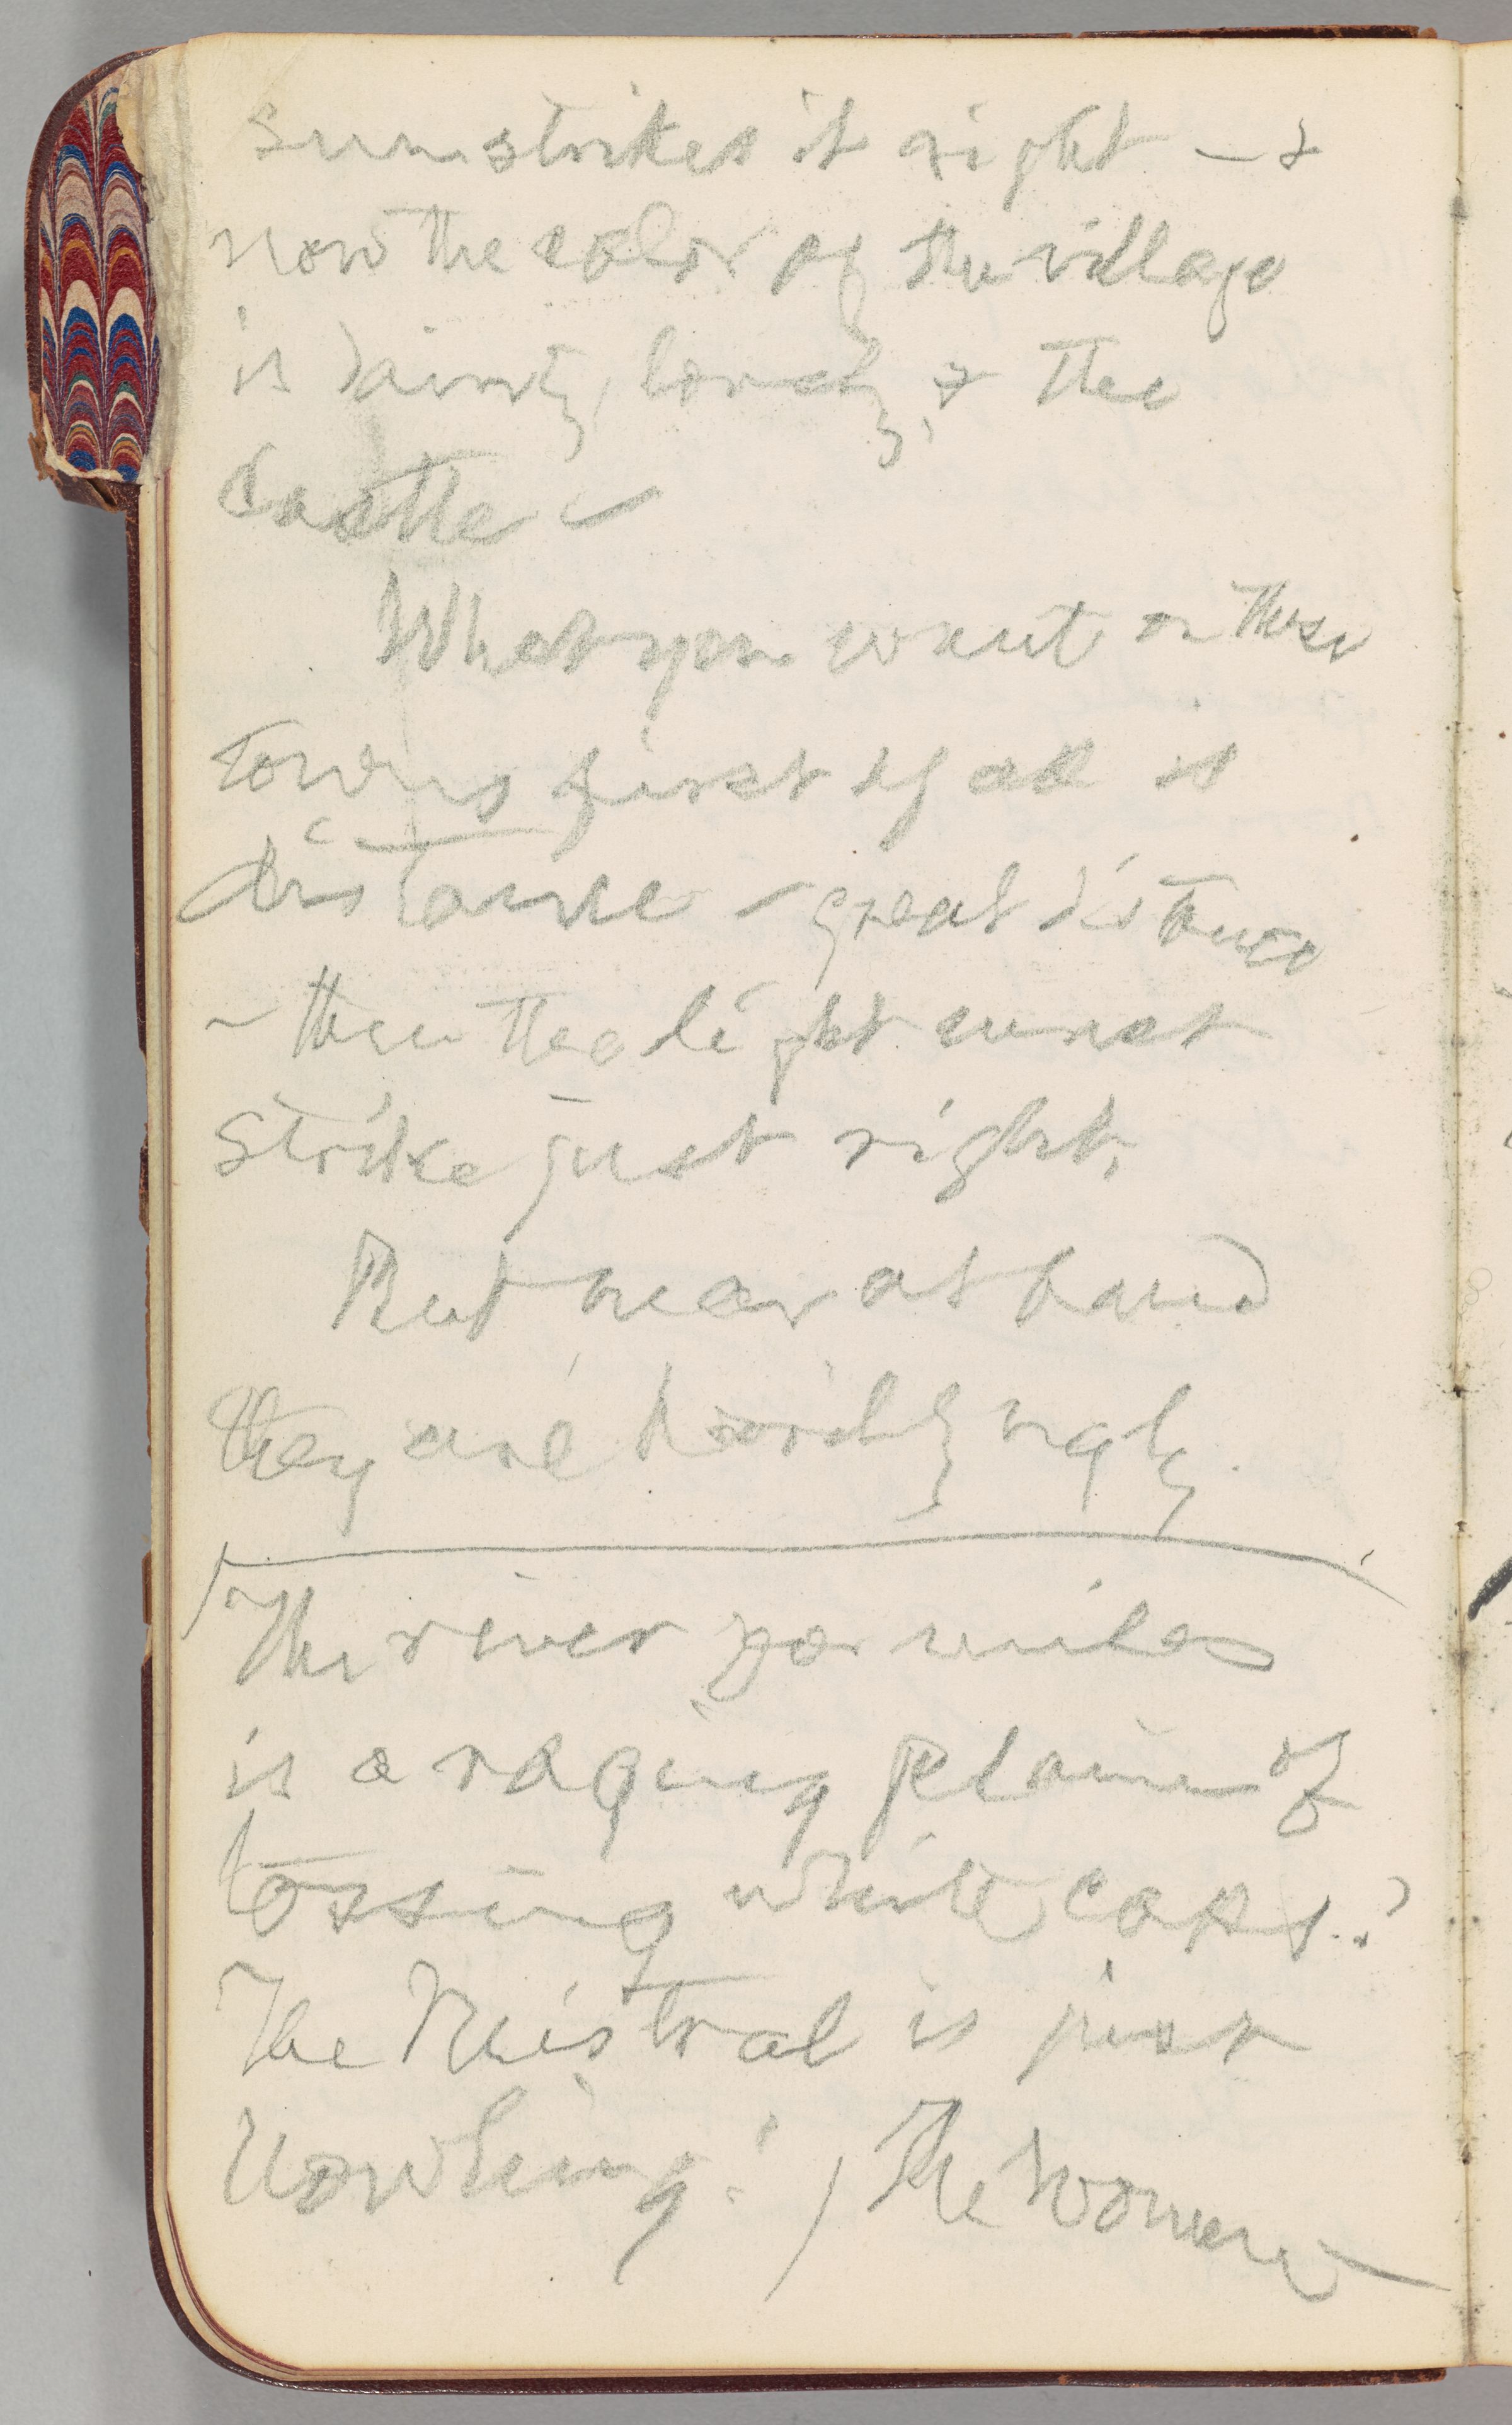 sun strikes it right — &
now the color of the village
is dainty, lovely, & the
castle —
What you want on these
towns first of all is
distance — great distance
— then the light must
strike just right.
But near at hand
they are horribly ugly.
The river for miles
is a raging plain of
tossing white caps.
The Mistral is just
howling! / The women